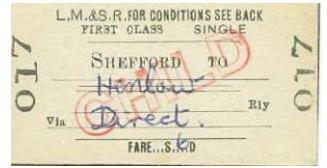 L.M.&S.R. FOR CONDITIONS SEE BACK
FIRST CLASS SINGLE
SHEFFORD TO
Henlow
CHILD
Rly
Via Direct.
FARE...S. 6D
017
017